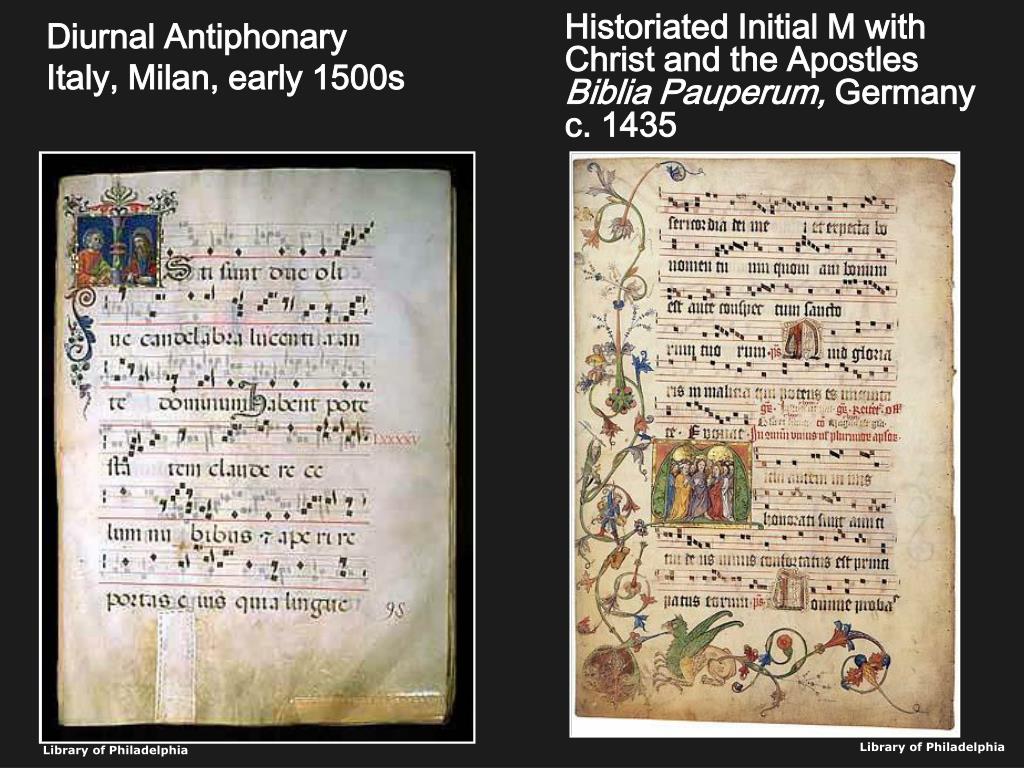 Diurnal Antiphonary
Italy, Milan, early 1500s
Historiated Initial M with
Christ and the Apostles
Biblia Pauperum, Germany
c. 1435
Sti sunt due oli
ue candelabra lucenti a an
te dominum Habent pote
LXXXXV
sta tem claude re ce
lum nu bibus ⁊ ape ri re
portas c ius quia lingue 98
sericordia dei me et expecta bo
nomen tu um quoni am bonum
est ante conspec tum sancto
rum tuo rum ps
gloria
in malicia qui potens es
te
autem
honorati sunt amici
tui de us nimis confortatus est princi
patus eorum ps Domine proba
Library of Philadelphia
Library of Philadelphia